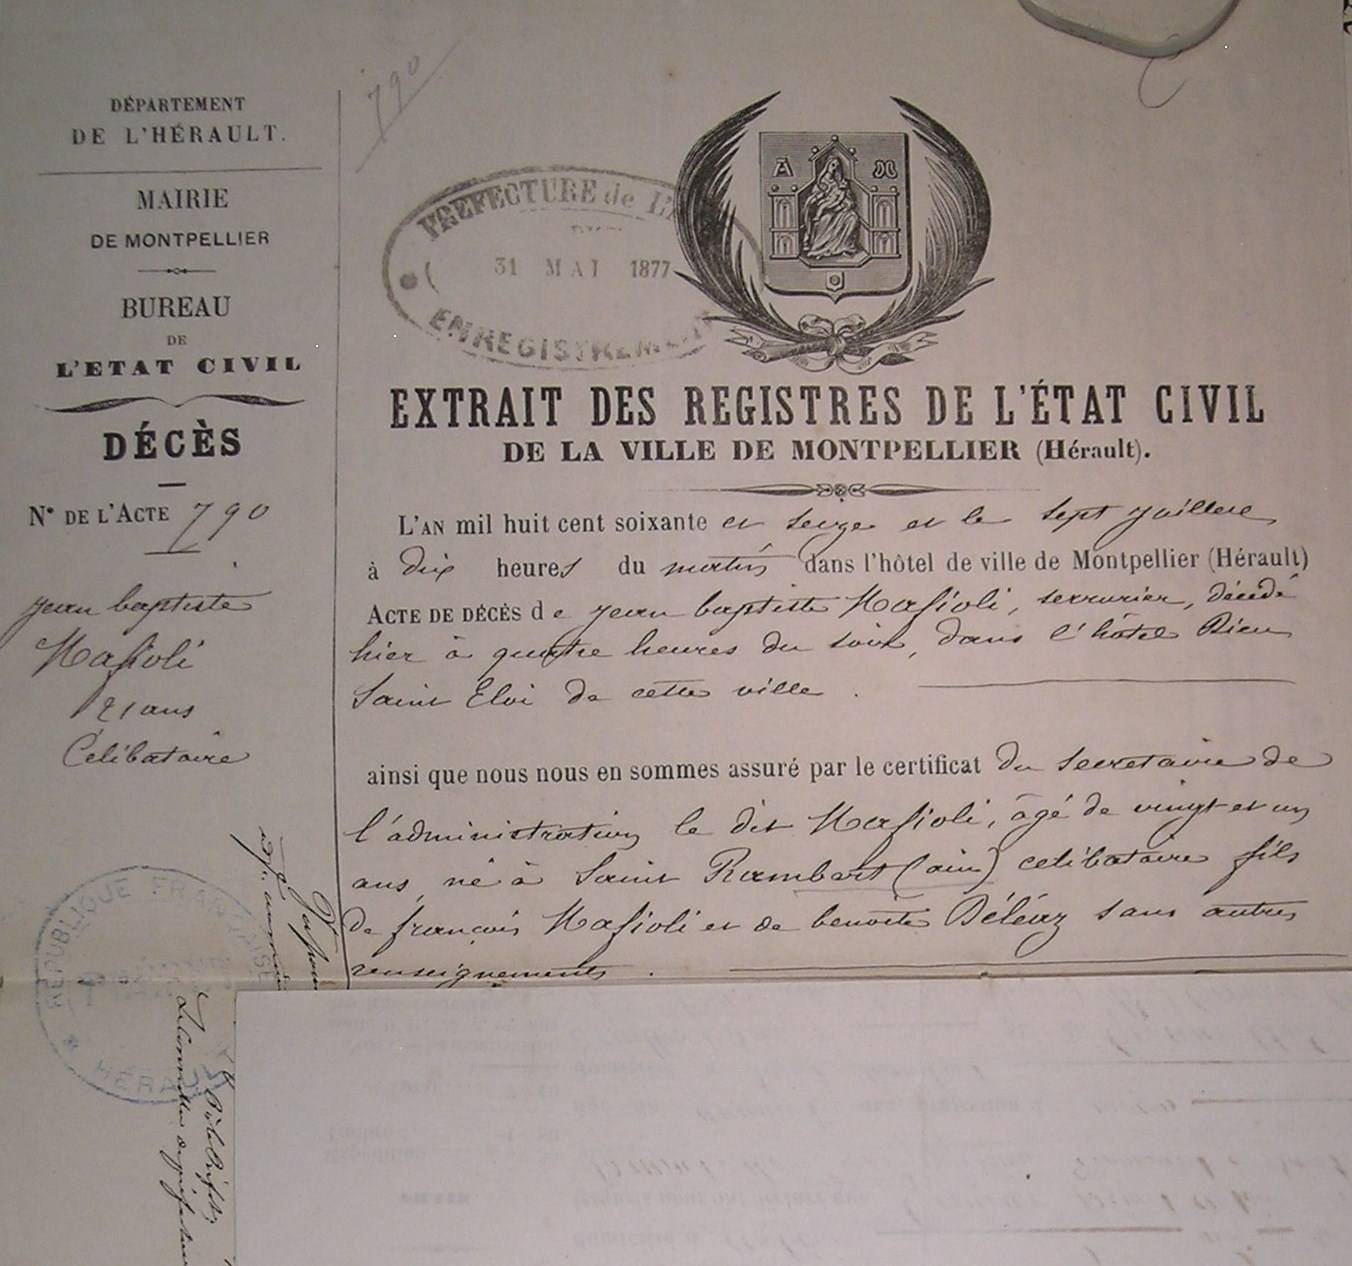 DÉPARTEMENT
DE L'HÉRAULT.
MAIRIE
DE MONTPELLIER
BUREAU
DE
L'ETAT CIVIL
DÉCÈS
N° DE L'ACTE 790
jean baptiste
Masioli
21 ans
Célibataire
790
PREFECTURE de L'
31 MAI 1877
ENREGISTREMENT
A M
EXTRAIT DES REGISTRES DE L'ÉTAT CIVIL
DE LA VILLE DE MONTPELLIER (Hérault).
L'AN mil huit cent soixante et seize et le sept juillet
à dix heures du matin dans l'hôtel de ville de Montpellier (Hérault)
ACTE DE DÉCÉS de jean baptiste Masioli, serrurier, décédé
hier à quatre heures du soir, dans l'hôtel Dieu
Saint Eloi de cette ville.
ainsi que nous nous en sommes assuré par le certificat du secretaire de
l'administration le dit Masioli, âgé de vingt et un
ans, né à Saint Rambert (ain) celibataire fils
de françois Masioli et de benoite Déléaz sans autres
renseignements.
REPUBLIQUE FRANÇAISE
HÉRAULT